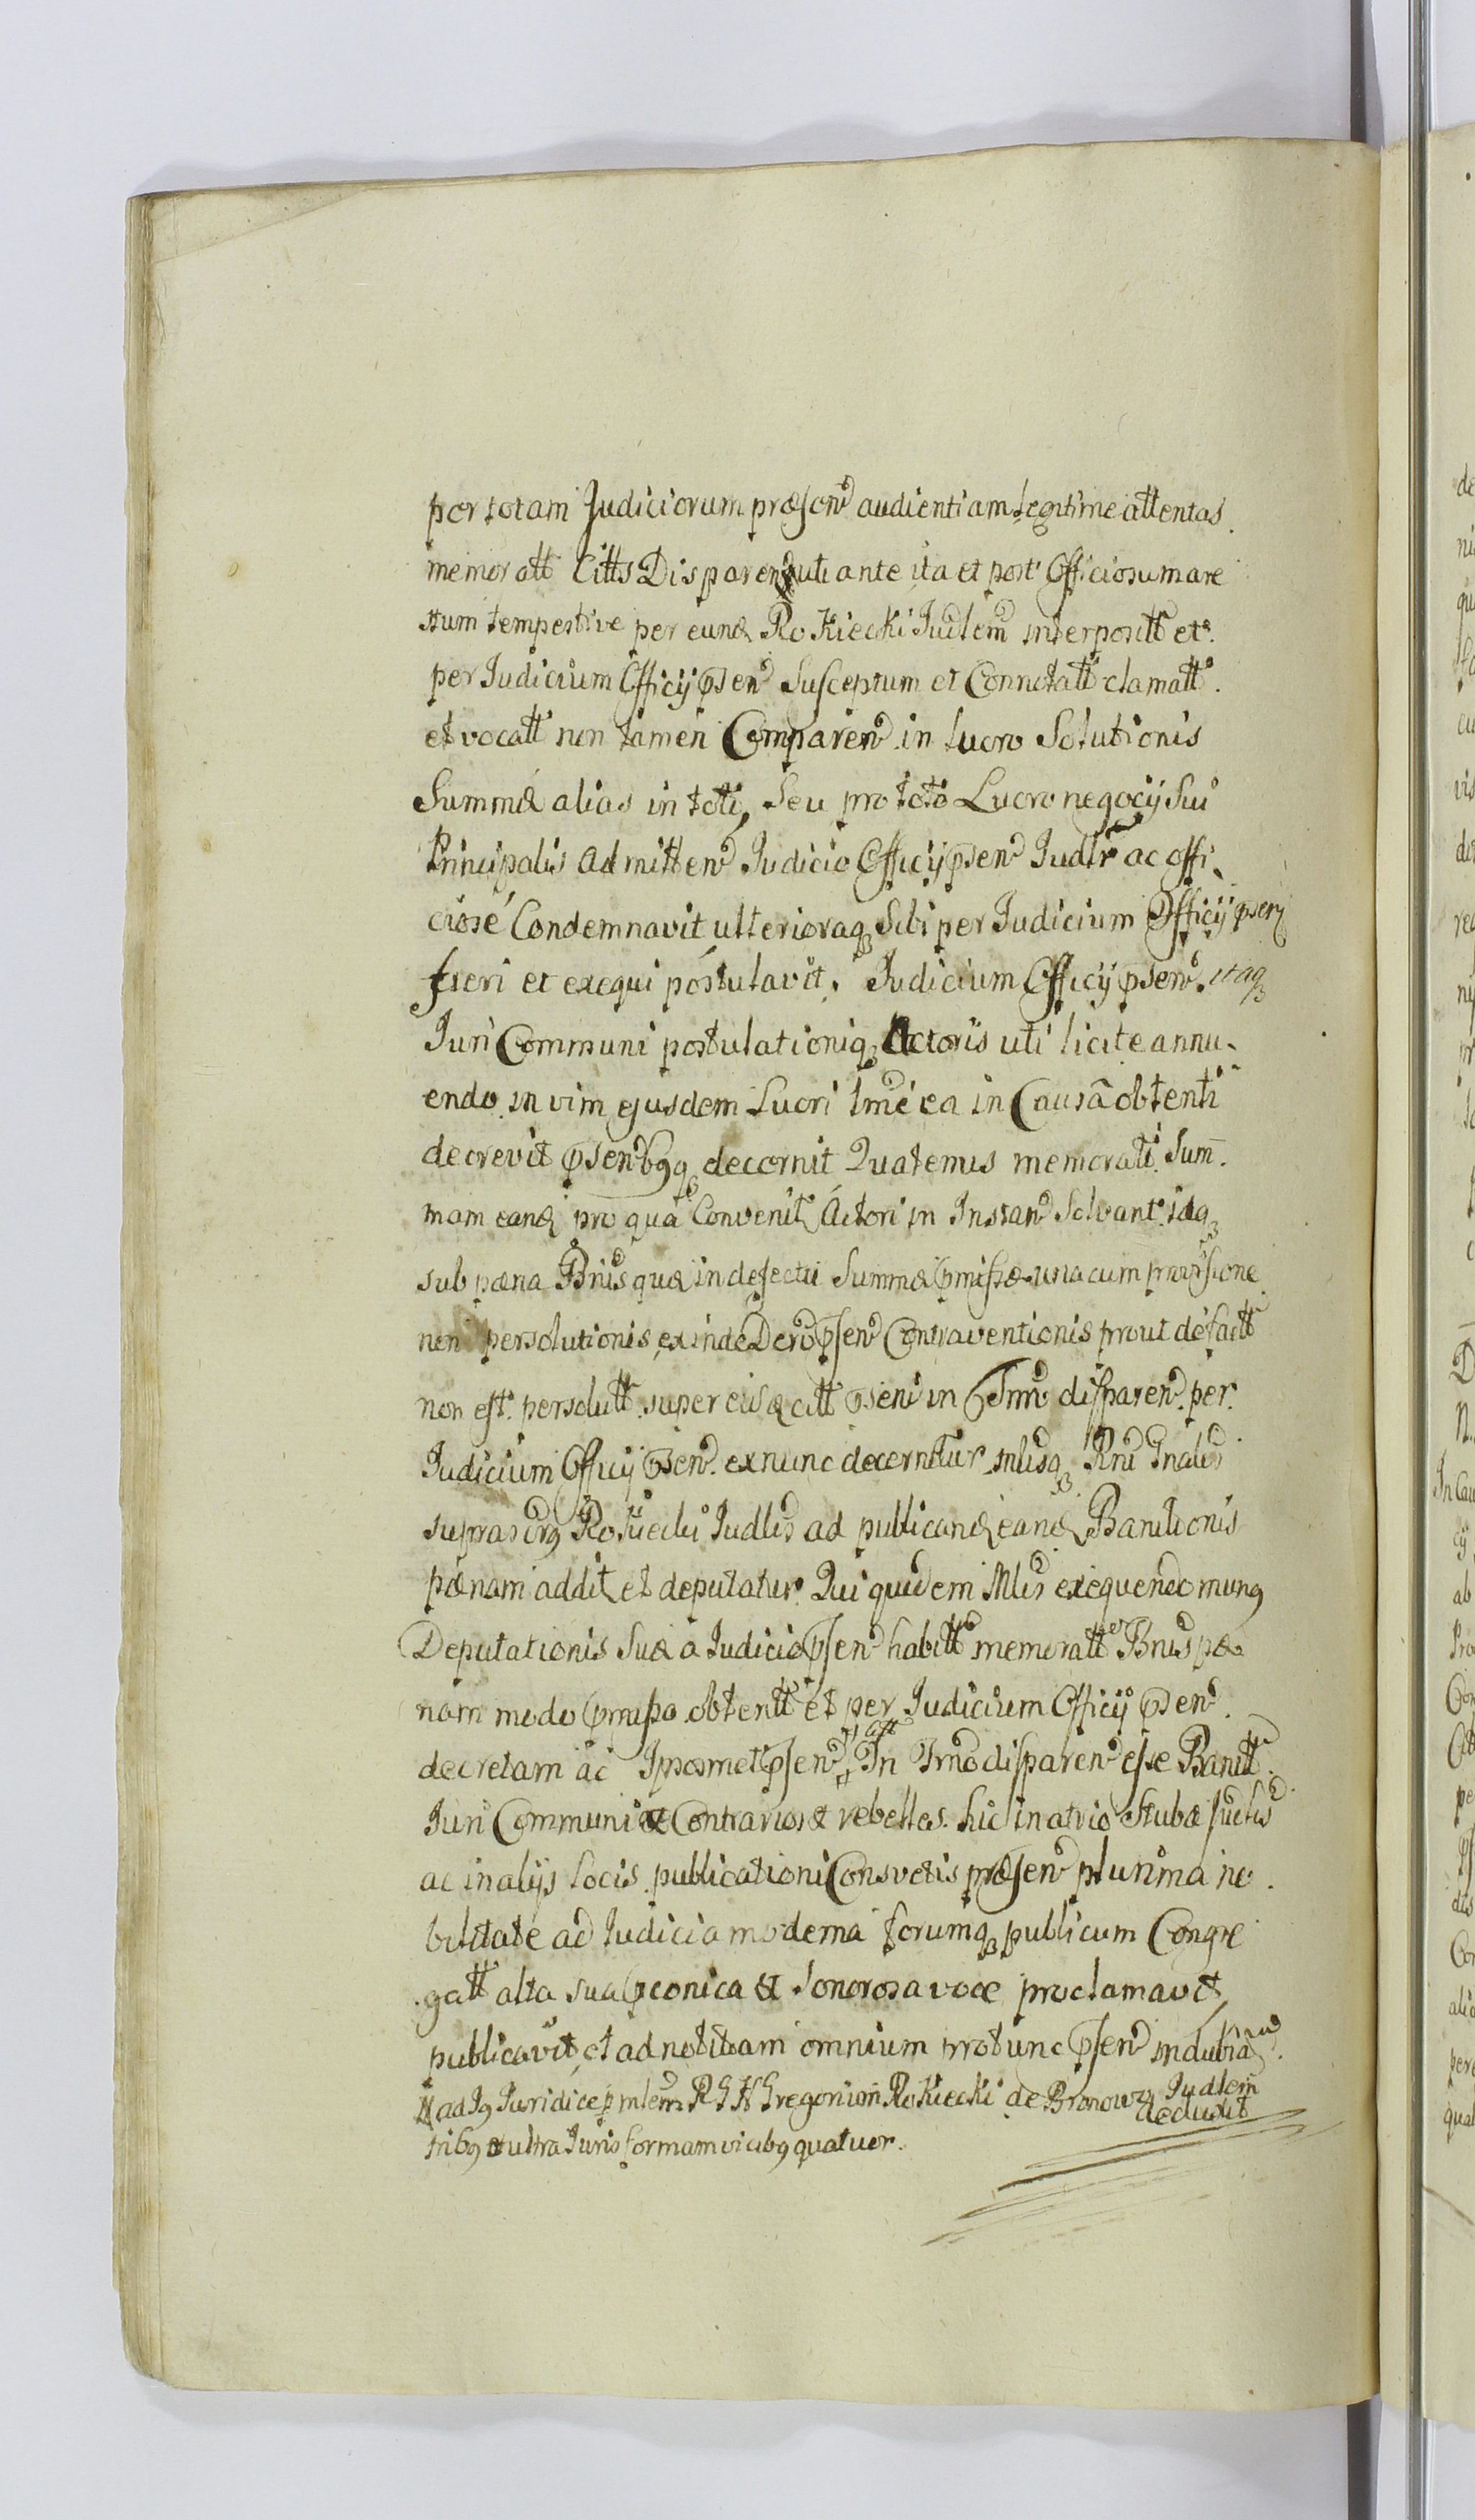 per totam Judiciorum præsen audientiam legitime attentas
memoratt Citts Disparen uti ante ita et post Officiosum are
stum tempestive per eund Rokiecki Judlem interpositt et
per Judicium Officij psen Susceptum et Connotatt clamatt.
et vocatt non tamen Comparen in lucro Solutionis
Summæ alias in toti, Seu pro toto Lucro negocij Sui
Principalis Admitten Judicio Officij psen Judlr ac offi
ciose Condemnavit ulterioraq Sibi per Judicium Officij psen
fieri et exequi postulavit. Judicium Officij psen. itaq
Juri Communi postulationiq Actoris uti licite annu
endo in vim ejusdem Lucri Ime ea in Causâ obtenti
decrevit psenbgq decernit Quatenus memorati Sum
mam eand pro qua Convenit Actori in Instan Solvant idq
sub pæna Bnis quæ in defectu Summæ pmissæ una cum provisione
non persolutionis exinde Decr psen Contraventionis prout defactt
non est persolutt super eisd citt pseni in Trno disparen per
Judicium Officij psen. ex nunc decernitur mlisq Rni Gnalis
suprascrig Rokiecki Judlis ad publicand eand Banitionis
pænam addit et deputatur Qui quidem Mlis exequendo mung
Deputationis Suæ a Judicio psen habitt memoratt Bnis pæ
nam modo pmisso obtentt et per Judicium Officij psen
decretam ac Ipsosmet psen citt In Trno disparen esse Banitt
Juri Communi & Contrarios & rebelles hic in atrio Stubæ Judlis
ac in alijs Locis publicationi Consvetis præsen plurima no
bilitate ad Judicia moderna forumq publicum Congre
gatt alta sua pconica & Sonorosa voce proclamavit
publicavit et ad notitiam omnium protunc psen indubia
ad Ig Juridice p mlem R G H Gregorium Rokiecki de Bronow Judlem
deduxit
tribg & ultra Juris formam vicibg quatuor.